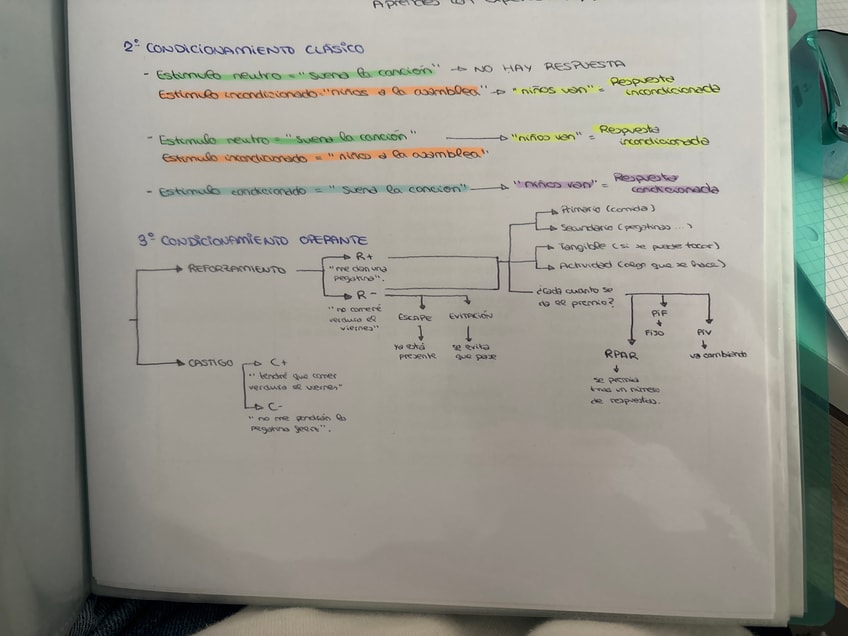 Aprendes con
2º CONDICIONAMIENTO CLÁSICO
- Estímulo neutro = "suena la canción" → NO HAY RESPUESTA
Estímulo incondicionado = "niños a la asamblea" → "niños van" = Respuesta incondicionada
- Estímulo neutro = "suena la canción" → "niños van" = Respuesta incondicionada
Estímulo incondicionado = "niños a la asamblea"
- Estímulo condicionado = "suena la canción" → "niños van" = Respuesta condicionada
3º CONDICIONAMIENTO OPERANTE
REFORZAMIENTO
R+
"me dan una
pegatina".
R-
"no comeré
verdura el
viernes"
ESCAPE
ya está
presente
EVITACIÓN
se evita
que pase
Primario (comida)
Secundario (pegatinas...)
Tangible (si se puede tocar)
Actividad (algo que se hace)
¿Cada cuanto se
da el premio?
RPAR
se premia
tras un número
de respuestas.
PIF
FIJO
PIV
va cambiando
CASTIGO
C+
"tendré que comer
verdura el viernes"
C-
"no me pondrán la
pegatina